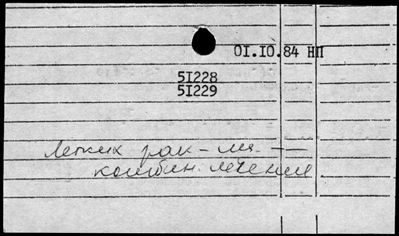 01.10.84 НП
51228
51229
Легких рак - ия. —
комбин. лечение